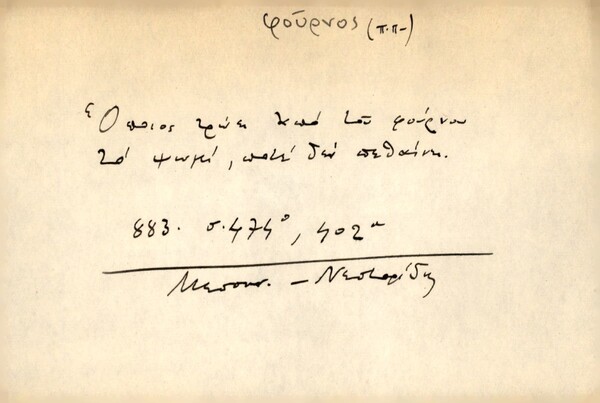 φούρνος (π.π-)
Ὅποιος τρώει ἀπό τοῦ φούρνου
τό ψωμί, ποτέ δέν πεθαίνει.
883. σ. 474, 402
Μεσσην. - Νεστορίδης